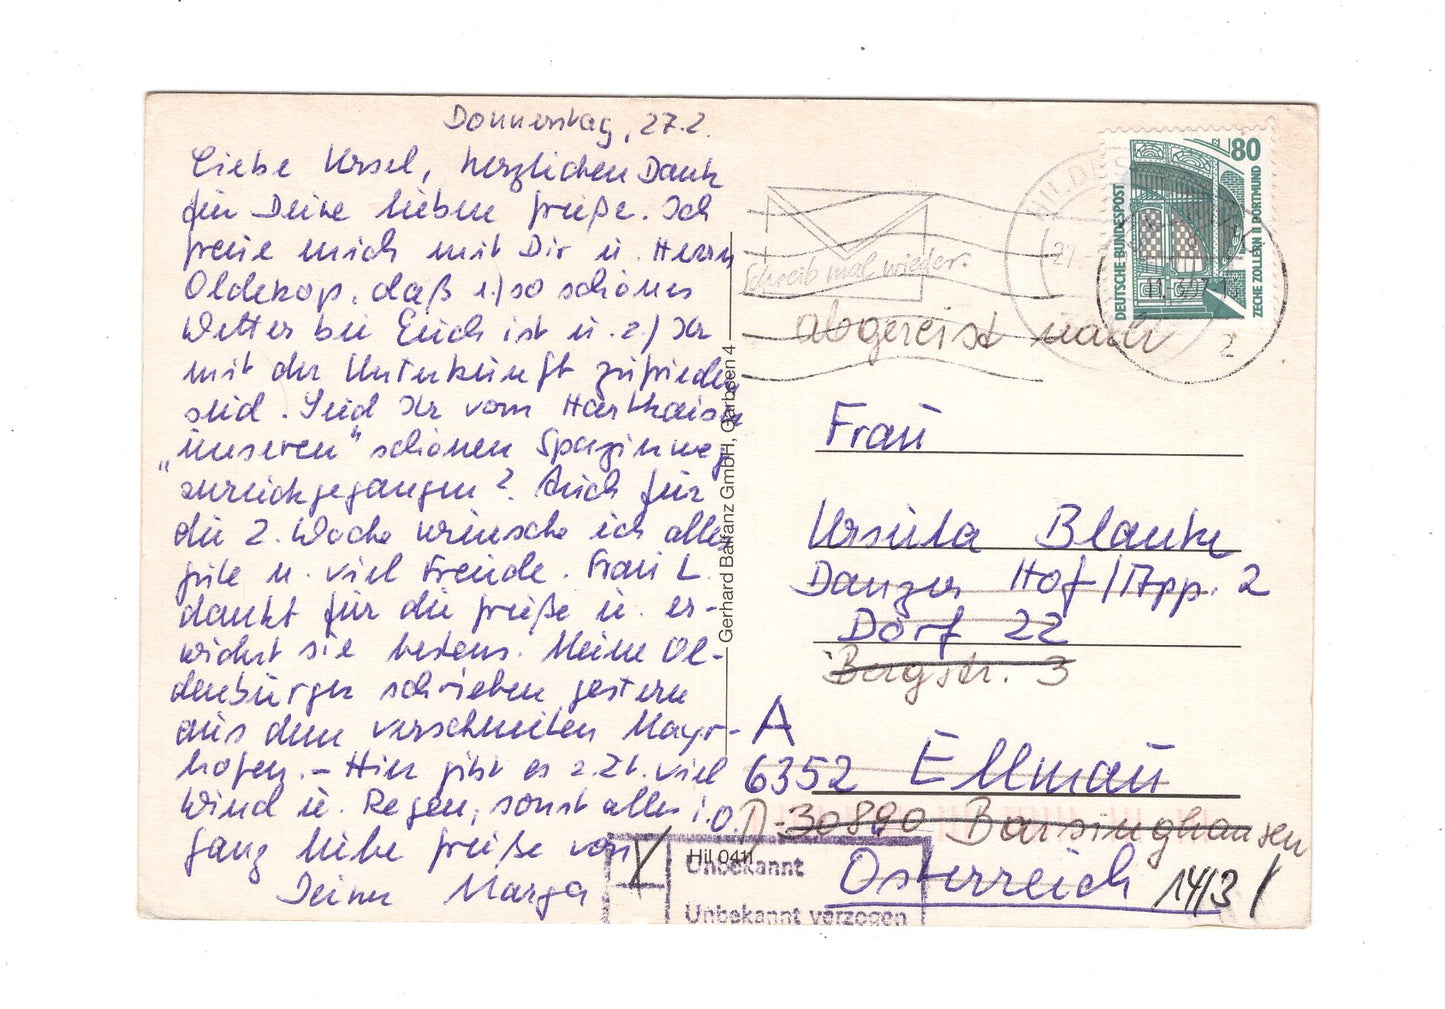 Donnerstag, 27.2.
Liebe Ursel, herzlichen Dank
für Deine lieben Grüße. Ich
freue mich mit Dir u. Herrn
Oldekop, daß 1.) so schönes
Wetter bei Euch ist u. 2.) Ihr
mit der Unterkunft zufrieden
seid. Seid Ihr vom Hartkaiser
„unseren“ schönen Spazierweg
zurückgegangen? Auch für
die 2. Woche wünsche ich alles
Gute u. viel Freude. Frau L.
dankt für die Grüße u. er-
widert sie bestens. Meine Ol-
denburger schrieben gestern
aus dem verschneiten Mayr-
hofen. – Hier gibt es z. Zt. viel
Wind u. Regen, sonst alles i.O.
Ganz liebe Grüße von
Deiner Marga
Gerhard Balfanz GmbH, Garbsen 4
Hil 0411
Schreib mal wieder.
27.
80
DEUTSCHE BUNDESPOST
ZECHE ZOLLERN II DORTMUND
2
abgereist nach
Frau
Ursula Blanke
Danzer Hof/App. 2
Dorf 22
Bergstr. 3
A
6352 Ellmau
D-30890 Barsinghausen
Österreich
14/3
Unbekannt
Unbekannt verzogen